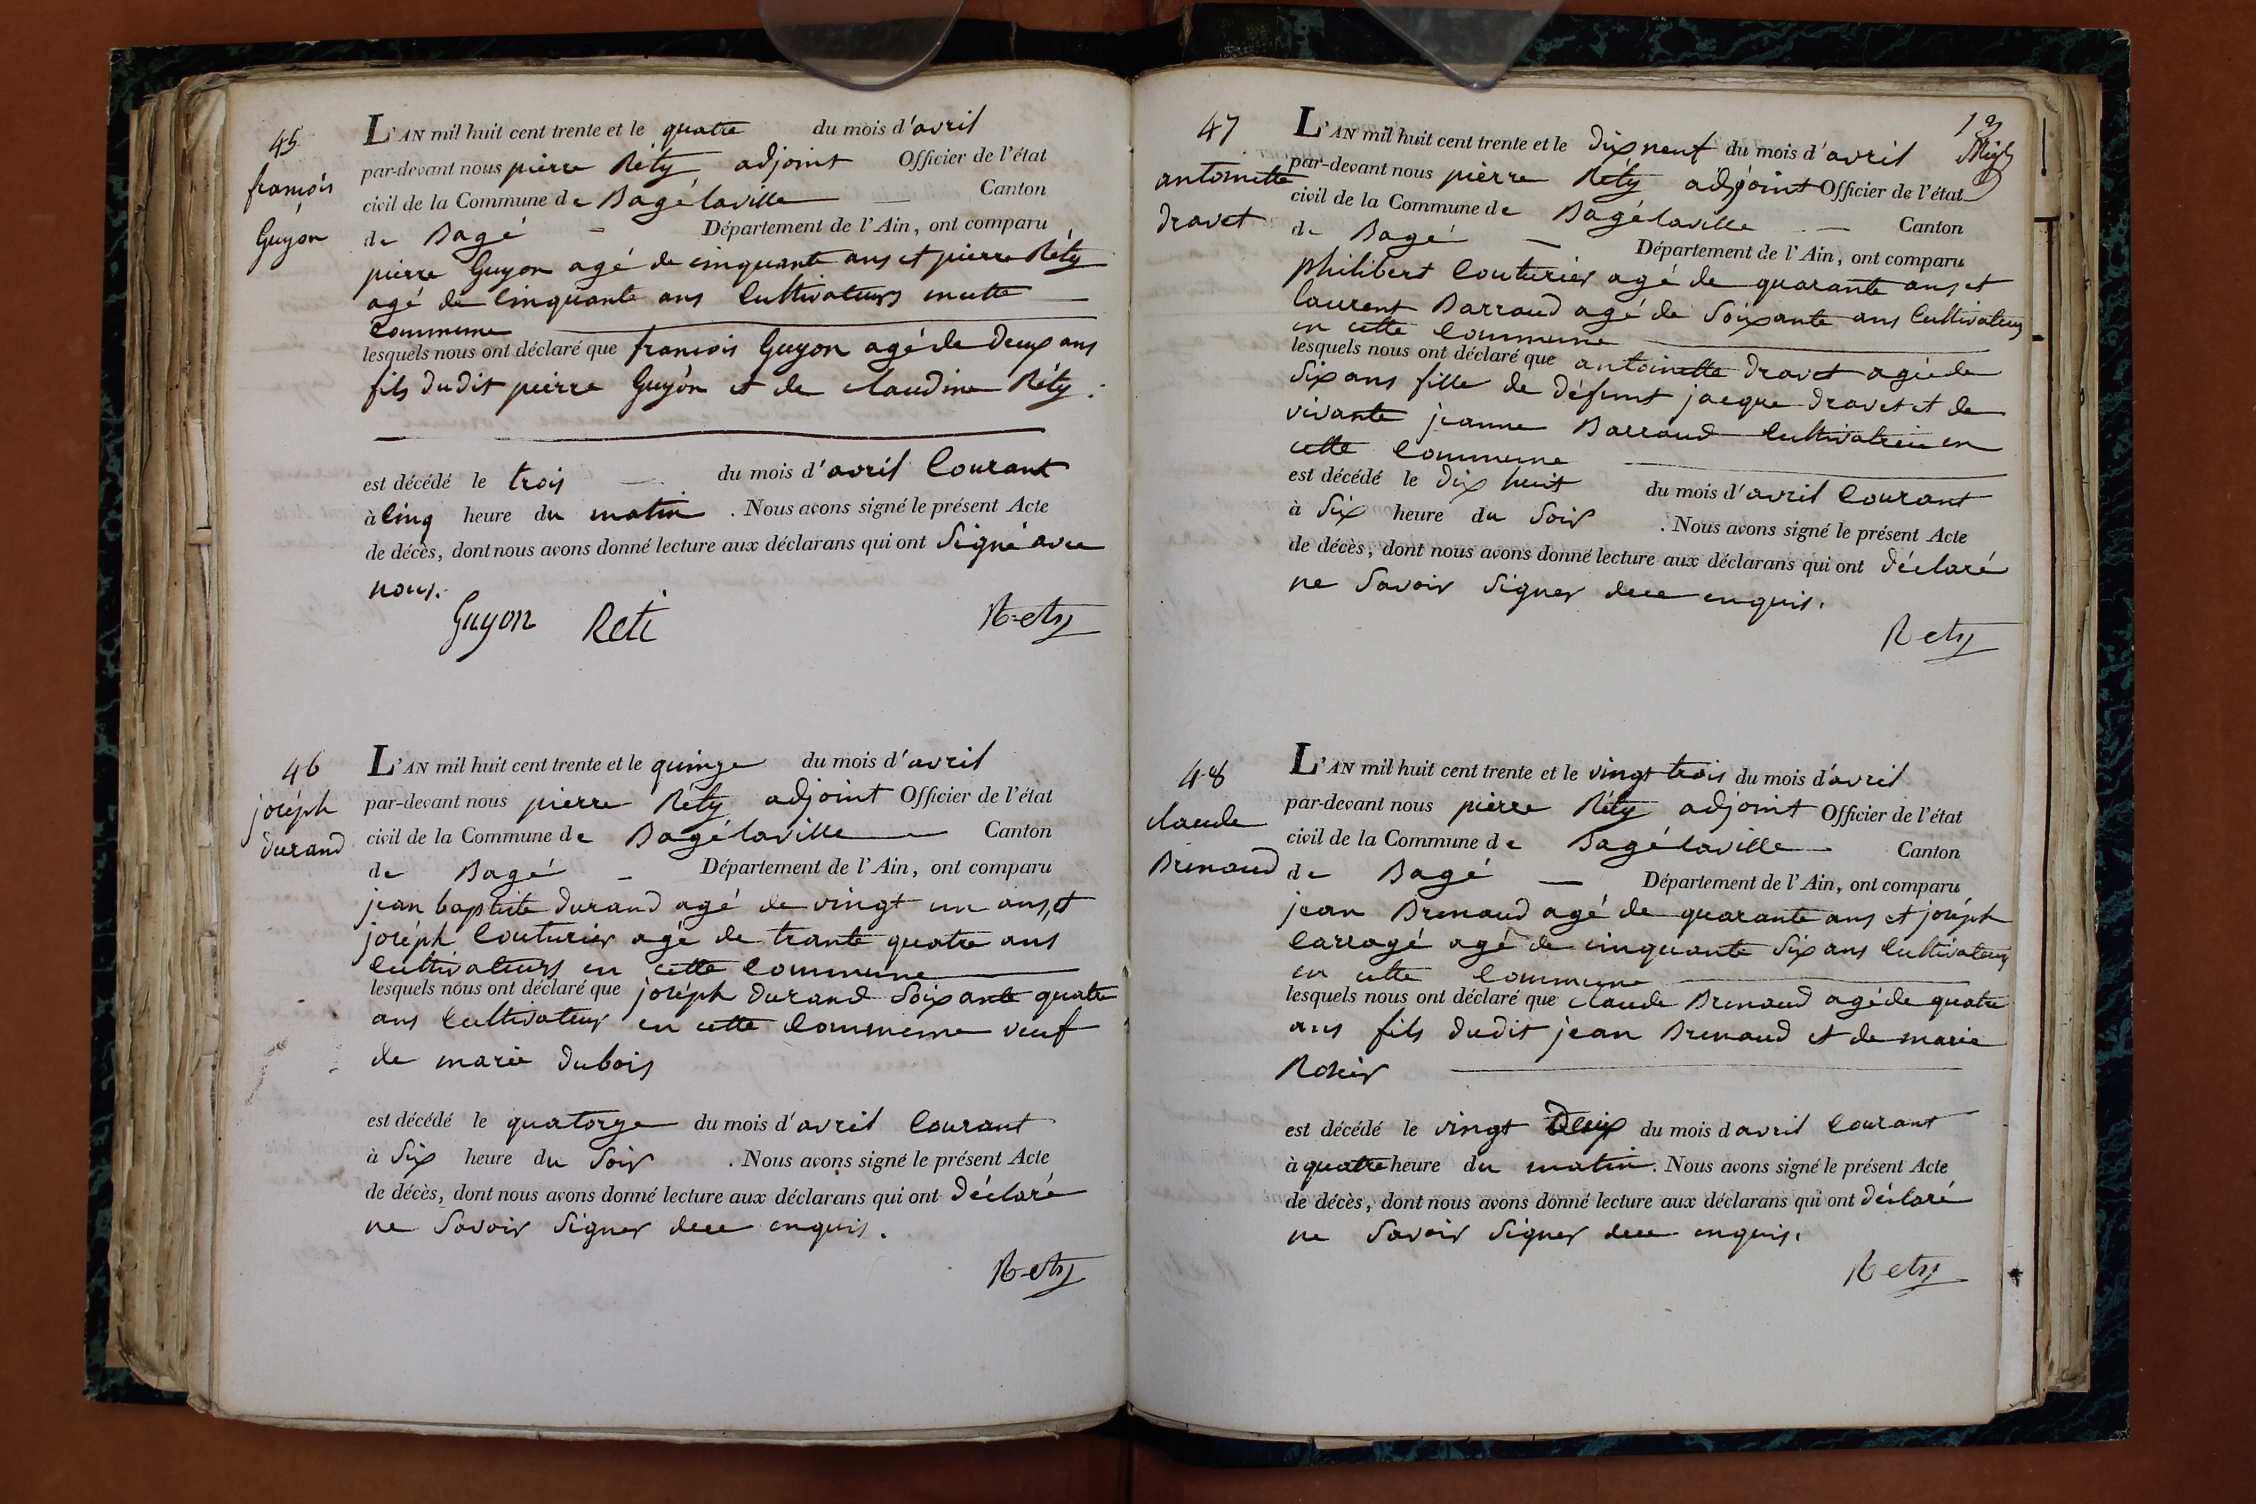 45
françois
Guyon
L'AN mil huit cent trente et le quatre du mois d'avril
par-devant nous pierre Réty adjoint Officier de l'état
civil de la Commune de Bagélaville Canton
de Bagé Département de l'Ain, ont comparu
pierre Guyon agé de cinquante ans et pierre Réty
agé de Cinquante ans Cultivateurs en cette
Commune
lesquels nous ont déclaré que francois Guyon agé de Deux ans
fils dudit pierre Guyon et de claudine Réty.
est décédé le trois du mois d'avril Courant
à Cinq heure du matin. Nous avons signé le présent Acte
de décès, dont nous avons donné lecture aux déclarans qui ont Signé avec
nous.
Guyon Reti Rety
46
joséph
durand
L'AN mil huit cent trente et le quinze du mois d'avril
par-devant nous pierre Réty adjoint Officier de l'état
civil de la Commune de Bagélaville Canton
de Bagé Département de l'Ain, ont comparu
jean baptiste durand agé de vingt un ans, et
joséph Couturier agé de trante quatre ans
Cultivateurs en cette Commune
lesquels nous ont déclaré que joséph durand Soixante quatre
ans Cultivateur en cette Commune veuf
de marie dubois
est décédé le quatorze du mois d'avril Courant
à Six heure du Soir. Nous avons signé le présent Acte
de décès, dont nous avons donné lecture aux déclarans qui ont Déclaré
ne Savoir Signer de ce enquis.
Rety
47
antoinette
dravet
L'AN mil huit cent trente et le Dix neuf du mois d'avril
par-devant nous pierre Réty adjoint Officier de l'état
civil de la Commune de Bagélaville Canton
de Bagé Département de l'Ain, ont comparu
philibert Couturier agé de quarante ans et
laurent Barraud agé de Soixante ans Cultivateurs
en cette Commune
lesquels nous ont déclaré que antoinette Dravet agée de
Six ans fille de Défunt jacque Dravet et de
vivante jeanne Barraud Cultivatrice en
cette Commune
est décédé le Dix huit du mois d'avril Courant
à Six heure du Soir. Nous avons signé le présent Acte
de décès, dont nous avons donné lecture aux déclarans qui ont Déclaré
ne Savoir Signer de ce enquis.
Rety
48
claude
Brenaud
L'AN mil huit cent trente et le vingt trois du mois d'avril
par-devant nous pierre Réty adjoint Officier de l'état
civil de la Commune de Bagélaville Canton
de Bagé Département de l'Ain, ont comparu
jean Brenaud agé de quarante ans et joséph
Carragé agé de cinquante Six ans Cultivateurs
en cette Commune
lesquels nous ont déclaré que claude Brenaud agé de quatre
ans fils dudit jean Brenaud et de marie
est décédé le vingt Deux du mois d avril Courant
à quatre heure du matin. Nous avons signé le présent Acte
de décès, dont nous avons donné lecture aux déclarans qui ont Déclaré
ne Savoir Signer de ce enquis.
Rety